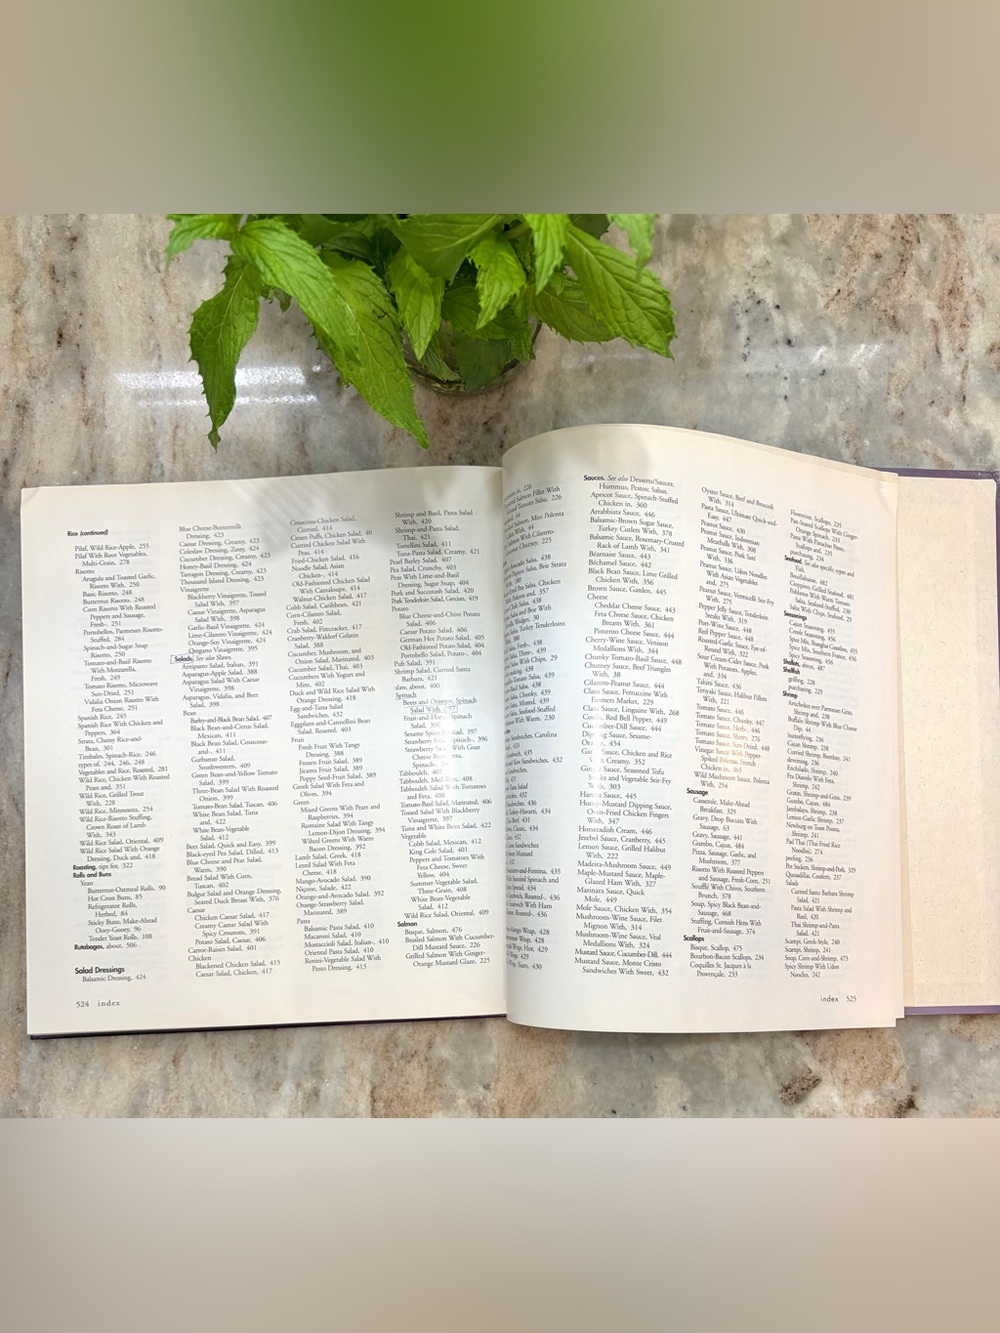 Rice (continued)
Pilaf, Wild Rice-Apple, 255
Pilaf With Root Vegetables,
Multi-Grain, 278
Risotto
Arugula and Toasted Garlic,
Risotto With, 250
Basic Risotto, 248
Butternut Risotto, 248
Corn Risotto With Roasted
Peppers and Sausage,
Fresh-, 251
Portobellos, Parmesan Risotto-
Stuffed, 284
Spinach-and-Sugar Snap
Risotto, 250
Tomato-and-Basil Risotto
With Mozzarella,
Fresh, 249
Tomato Risotto, Microwave
Sun-Dried, 251
Vidalia Onion Risotto With
Feta Cheese, 251
Spanish Rice, 245
Spanish Rice With Chicken and
Peppers, 364
Strata, Cheesy Rice-and-
Bean, 301
Timbales, Spinach-Rice, 246
types of, 244, 246, 248
Vegetables and Rice, Roasted, 281
Wild Rice, Chicken With Roasted
Pears and, 351
Wild Rice, Grilled Trout
With, 228
Wild Rice, Minnesota, 254
Wild Rice-Risotto Stuffing,
Crown Roast of Lamb
With, 343
Wild Rice Salad, Oriental, 409
Wild Rice Salad With Orange
Dressing, Duck and, 418
Roasting, tips for, 322
Rolls and Buns
Yeast
Butternut-Oatmeal Rolls, 90
Hot Cross Buns, 85
Refrigerator Rolls,
Herbed, 84
Sticky Buns, Make-Ahead
Ooey-Gooey, 96
Tender Yeast Rolls, 108
Rutabagas, about, 506
Salad Dressings
Balsamic Dressing, 424
524 index
Blue Cheese-Buttermilk
Dressing, 423
Caesar Dressing, Creamy, 423
Coleslaw Dressing, Zesty, 424
Cucumber Dressing, Creamy, 423
Honey-Basil Dressing, 424
Tarragon Dressing, Creamy, 423
Thousand Island Dressing, 423
Vinaigrette
Blackberry Vinaigrette, Tossed
Salad With, 397
Caesar Vinaigrette, Asparagus
Salad With, 398
Garlic-Basil Vinaigrette, 424
Lime-Cilantro Vinaigrette, 424
Orange-Soy Vinaigrette, 424
Oregano Vinaigrette, 395
Salads. See also Slaws.
Antipasto Salad, Italian, 391
Asparagus-Apple Salad, 388
Asparagus Salad With Caesar
Vinaigrette, 398
Asparagus, Vidalia, and Beet
Salad, 398
Bean
Barley-and-Black Bean Salad, 407
Black Bean-and-Citrus Salad,
Mexican, 411
Black Bean Salad, Couscous-
and-, 411
Garbanzo Salad,
Southwestern, 409
Green Bean-and-Yellow Tomato
Salad, 399
Three-Bean Salad With Roasted
Onion, 399
Tomato-Bean Salad, Tuscan, 406
White Bean Salad, Tuna
and, 422
White Bean-Vegetable
Salad, 412
Beet Salad, Quick and Easy, 399
Black-eyed Pea Salad, Dilled, 415
Blue Cheese and Pear Salad,
Warm, 390
Bread Salad With Corn,
Tuscan, 402
Bulgur Salad and Orange Dressing,
Seared Duck Breast With, 376
Caesar
Chicken Caesar Salad, 417
Creamy Caesar Salad With
Spicy Croutons, 391
Potato Salad, Caesar, 406
Carrot-Raisin Salad, 401
Chicken
Blackened Chicken Salad, 415
Caesar Salad, Chicken, 417
Couscous-Chicken Salad,
Curried, 414
Cream Puffs, Chicken Salad, 40
Curried Chicken Salad With
Peas, 414
Fried-Chicken Salad, 416
Noodle Salad, Asian
Chicken-, 414
Old-Fashioned Chicken Salad
With Cantaloupe, 414
Walnut-Chicken Salad, 417
Cobb Salad, Caribbean, 421
Corn-Cilantro Salad,
Fresh, 402
Crab Salad, Firecracker, 417
Cranberry-Waldorf Gelatin
Salad, 388
Cucumber, Mushroom, and
Onion Salad, Marinated, 403
Cucumber Salad, Thai, 403
Cucumbers With Yogurt and
Mint, 402
Duck and Wild Rice Salad With
Orange Dressing, 418
Egg-and-Tuna Salad
Sandwiches, 432
Eggplant-and-Cannellini Bean
Salad, Roasted, 403
Fruit
Fresh Fruit With Tangy
Dressing, 388
Frozen Fruit Salad, 389
Jícama Fruit Salad, 389
Poppy Seed-Fruit Salad, 389
Greek Salad With Feta and
Olives, 394
Green
Mixed Greens With Pears and
Raspberries, 394
Romaine Salad With Tangy
Lemon-Dijon Dressing, 394
Wilted Greens With Warm
Bacon Dressing, 392
Lamb Salad, Greek, 418
Lentil Salad With Feta
Cheese, 418
Mango-Avocado Salad, 390
Niçoise, Salade, 422
Orange-and-Avocado Salad, 392
Orange-Strawberry Salad,
Marinated, 389
Pasta
Balsamic Pasta Salad, 410
Macaroni Salad, 410
Mostaccioli Salad, Italian-, 410
Oriental Pasta Salad, 410
Rotini-Vegetable Salad With
Pesto Dressing, 413
Shrimp and Basil, Pasta Salad
With, 420
Shrimp-and-Pasta Salad,
Thai, 421
Tortellini Salad, 411
Tuna-Pasta Salad, Creamy, 421
Pearl Barley Salad, 407
Pea Salad, Crunchy, 403
Peas With Lime-and-Basil
Dressing, Sugar Snap, 404
Pork and Succotash Salad, 420
Pork Tenderloin Salad, Grecian, 419
Potato
Blue Cheese-and-Chive Potato
Salad, 406
Caesar Potato Salad, 406
German Hot Potato Salad, 405
Old-Fashioned Potato Salad, 404
Portobello Salad, Potato-, 404
Pub Salad, 391
Shrimp Salad, Curried Santa
Barbara, 421
slaw, about, 400
Spinach
Beets and Oranges, Spinach
Salad With, 397
Fruit-and-Spinach
Salad,
Sesame Spinach Salad, 397
Strawberry-Spinach, 396
With Goat
Cheese
Spinach
Tabbouleh, 407
Tabbouleh, 408
Tabbouleh Salad With Tomatoes
and Feta, 408
Tomato-Basil Salad, Marinated, 406
Tossed Salad With Blackberry
Vinaigrette, 397
Tuna and White Bean Salad, 422
Vegetable
Cobb Salad, Mexican, 412
King Cole Salad, 401
Peppers and Tomatoes With
Feta Cheese, Sweet
Yellow, 404
Summer-Vegetable Salad,
Three-Grain, 408
White Bean-Vegetable
Salad, 412
Wild Rice Salad, Oriental, 409
Salmon
Bisque, Salmon, 476
Broiled Salmon With Cucumber-
Dill Mustard Sauce, 226
Grilled Salmon With Ginger-
Orange Mustard Glaze, 225
Sauces. See also Desserts/Sauces;
Hummus; Pestos; Salsas.
Apricot Sauce, Spinach-Stuffed
Chicken in, 360
Arrabbiata Sauce, 446
Balsamic-Brown Sugar Sauce,
Turkey Cutlets With, 378
Balsamic Sauce, Rosemary-Crusted
Rack of Lamb With, 341
Béarnaise Sauce, 443
Béchamel Sauce, 442
Black Bean Sauce, Lime Grilled
Chicken With, 356
Brown Sauce, Garden, 445
Cheese
Cheddar Cheese Sauce, 443
Feta Cheese Sauce, Chicken
Breasts With, 361
Pimento Cheese Sauce, 444
Cherry-Wine Sauce, Venison
Medallions With, 344
Chunky Tomato-Basil Sauce, 448
Chutney Sauce, Beef Triangles
With, 38
Cilantro-Peanut Sauce, 444
Clam Sauce, Fettuccine With
Market, 229
Clam Sauce, Linguine With, 268
Red Bell Pepper, 449
Cucumber-Dill Sauce, 444
Dipping Sauce, Sesame-
454
Sauce, Chicken and Rice
Creamy, 352
Sauce, Seasoned Tofu
and Vegetable Stir-Fry
With, 303
Harissa Sauce, 445
Honey-Mustard Dipping Sauce,
Oven-Fried Chicken Fingers
With, 347
Horseradish Cream, 446
Jezebel Sauce, Cranberry, 445
Lemon Sauce, Grilled Halibut
With, 222
Madeira-Mushroom Sauce, 449
Maple-Mustard Sauce, Maple-
Glazed Ham With, 327
Marinara Sauce, Quick
Mole, 449
Mole Sauce, Chicken With, 354
Mushroom-Wine Sauce, Filet
Mignon With, 314
Mushroom-Wine Sauce, Veal
Medallions With, 324
Mustard Sauce, Cucumber-Dill, 444
Mustard Sauce, Monte Cristo
Sandwiches With Sweet, 432
Oyster Sauce, Beef and Broccoli
With, 314
Pasta Sauce, Ultimate Quick-and-
Easy, 447
Peanut Sauce, 430
Peanut Sauce, Indonesian
Meatballs With, 308
Peanut Sauce, Pork Saté
With, 336
Peanut Sauce, Udon Noodles
With Asian Vegetables
and, 275
Peanut Sauce, Vermicelli Stir-Fry
With, 275
Pepper Jelly Sauce, Tenderloin
Steaks With, 319
Port-Wine Sauce, 448
Red Pepper Sauce, 448
Roasted-Garlic Sauce, Eye-of-
Round With, 322
Sour Cream-Cider Sauce, Pork
With Potatoes, Apples,
and, 334
Tahini Sauce, 436
Teriyaki Sauce, Halibut Fillets
With, 221
Tomato Sauce, 446
Tomato Sauce, Chunky, 447
Tomato Sauce, Herb-, 446
Tomato Sauce, Three, 276
Tomato Sauce, Sun-Dried, 448
Vinegar Sauce With Pepper-
Spiked Polenta, French
Chicken in, 363
Wild Mushroom Sauce, Polenta
With, 254
Sausage
Casserole, Make-Ahead
Breakfast, 329
Gravy, Drop Biscuits With
Sausage, 63
Gravy, Sausage, 441
Gumbo, Cajun, 484
Pizza, Sausage, Garlic, and
Mushroom, 377
Risotto With Roasted Peppers
and Sausage, Fresh-Corn, 251
Soufflé With Chives, Southern
Brunch, 378
Soup, Spicy Black Bean-and-
Sausage, 468
Stuffing, Cornish Hens With
Fruit-and-Sausage, 374
Scallops
Bisque, Scallop, 475
Bourbon-Bacon Scallops, 234
Coquilles St. Jacques à la
Provençale, 233
Florentine, Scallops, 235
Pan-Seared Scallops With Ginger-
Orange Spinach, 233
Pasta With Pistachio Pesto,
Scallops and, 235
purchasing, 234
Seafood. See also specific types and
Fish.
Bouillabaisse, 482
Cioppino, Grilled Seafood, 481
Poblanos With Warm Tomato
Salsa, Seafood-Stuffed, 230
Salsa With Chips, Seafood, 29
Seasonings
Cajun Seasoning, 455
Creole Seasoning, 456
Spice Mix, Shanghai Coastline, 455
Spice Mix, Southern France, 456
Spicy Seasoning, 456
Shallots, about, 487
Shellfish
grilling, 228
purchasing, 229
Shrimp
Artichokes over Parmesan Grits,
Shrimp and, 238
Buffalo Shrimp With Blue Cheese
Dip, 44
butterflying, 236
Cajun Shrimp, 238
Curried Shrimp, Bombay, 241
deveining, 236
Enchilado, Shrimp, 240
Fra Diavola With Feta,
Shrimp, 242
Gratin, Shrimp-and-Grits, 239
Gumbo, Cajun, 484
Jambalaya, Shrimp, 238
Lemon-Garlic Shrimp, 237
Newburg on Toast Points,
Shrimp, 241
Pad Thai (Thai Fried Rice
Noodles), 274
peeling, 236
Pot Stickers, Shrimp-and-Pork, 329
Quesadillas, Confetti, 237
Salads
Curried Santa Barbara Shrimp
Salad, 421
Pasta Salad With Shrimp and
Basil, 420
Thai Shrimp-and-Pasta
Salad, 421
Scampi, Greek-Style, 240
Scampi, Shrimp, 241
Soup, Corn-and-Shrimp, 473
Spicy Shrimp With Udon
Noodles, 242
index 525